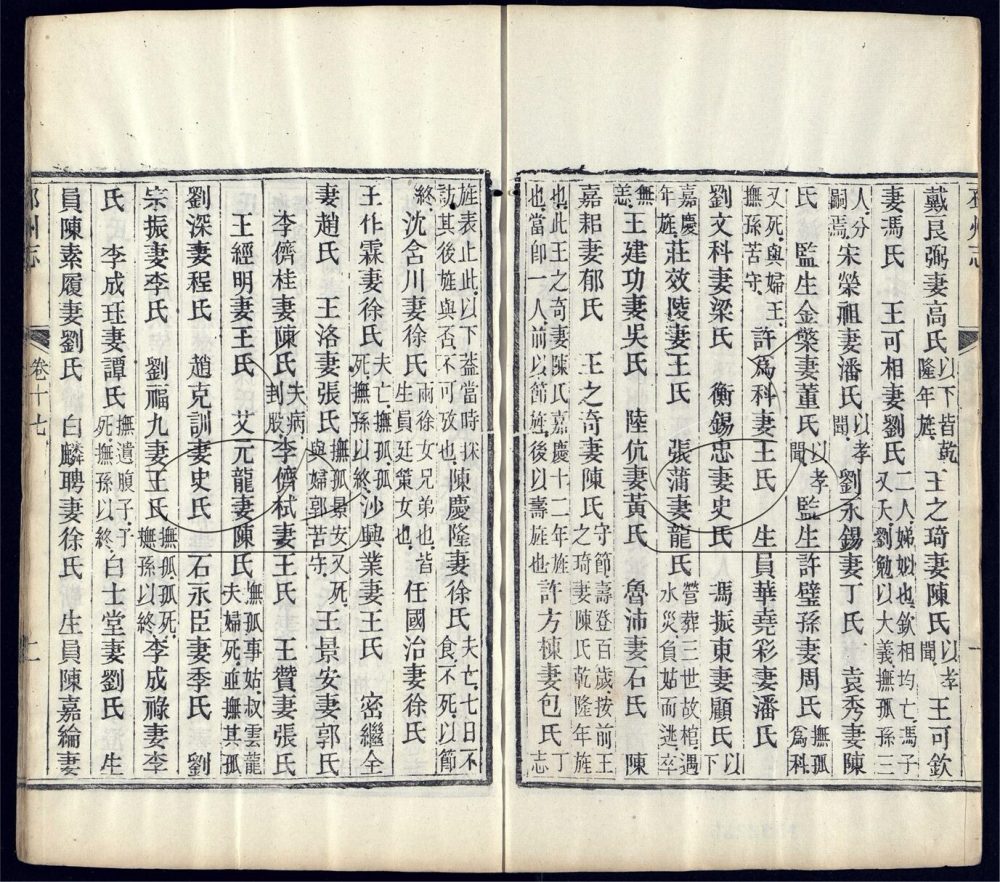 邳州志
戴良弼妻高氏以下皆乾隆年旌王之琦妻陳氏以孝聞王可欽
妻馮氏 王可相妻劉氏二人娣姒也欽相均亡馮子又夭劉勉以大義撫孤孫三
人分嗣焉宋榮祖妻潘氏以孝聞劉永錫妻丁氏 袁秀妻陳
氏 監生金榮妻董氏以孝聞監生許璧孫妻周氏撫孤為科
又死與婦王撫孫苦守許為科妻王氏 生員華堯彩妻潘氏
劉文科妻梁氏 衡錫忠妻史氏 馮振東妻顧氏以下
嘉慶年旌莊效陵妻王氏 張蒲妻龍氏營葬三世故棺遇水災負姑而逃卒
無恙王建功妻吳氏 陸伉妻黃氏 魯沛妻石氏 陳
嘉耜妻郁氏 王之奇妻陳氏守節壽登百歲按前王之琦妻陳氏乾隆年旌
也此王之奇妻陳氏嘉慶十二年旌也當即一人前以節旌後以壽旌也許方棟妻包氏丁志
旌表止此以下葢當時採訪其後旌與否不可攷也陳慶隆妻徐氏夫亡七日不食不死以節
終沈含川妻徐氏兩徐女兄弟也皆生員廷策女也任國治妻徐氏
王作霖妻徐氏夫亡撫孤孤死撫孫以終沙興業妻王氏 密繼全
妻趙氏 王洛妻張氏撫孤景安又死與婦郭苦守王景安妻郭氏
李儕桂妻陳氏夫病刲股李儕栻妻王氏 王贊妻張氏
王經明妻王氏 艾元龍妻陳氏撫孤事姑叔雲龍夫婦死並撫其孤
劉深妻程氏 趙克訓妻史氏 石永臣妻李氏 劉
宗振妻李氏 劉福九妻王氏撫孤孤死撫孫以終李成祿妻李
氏 李成玨妻譚氏撫遺腹子子死撫孫以終白士堂妻劉氏 生
員陳素履妻劉氏 白麟聘妻徐氏 生員陳嘉綸妻
邳州志 卷十七 上